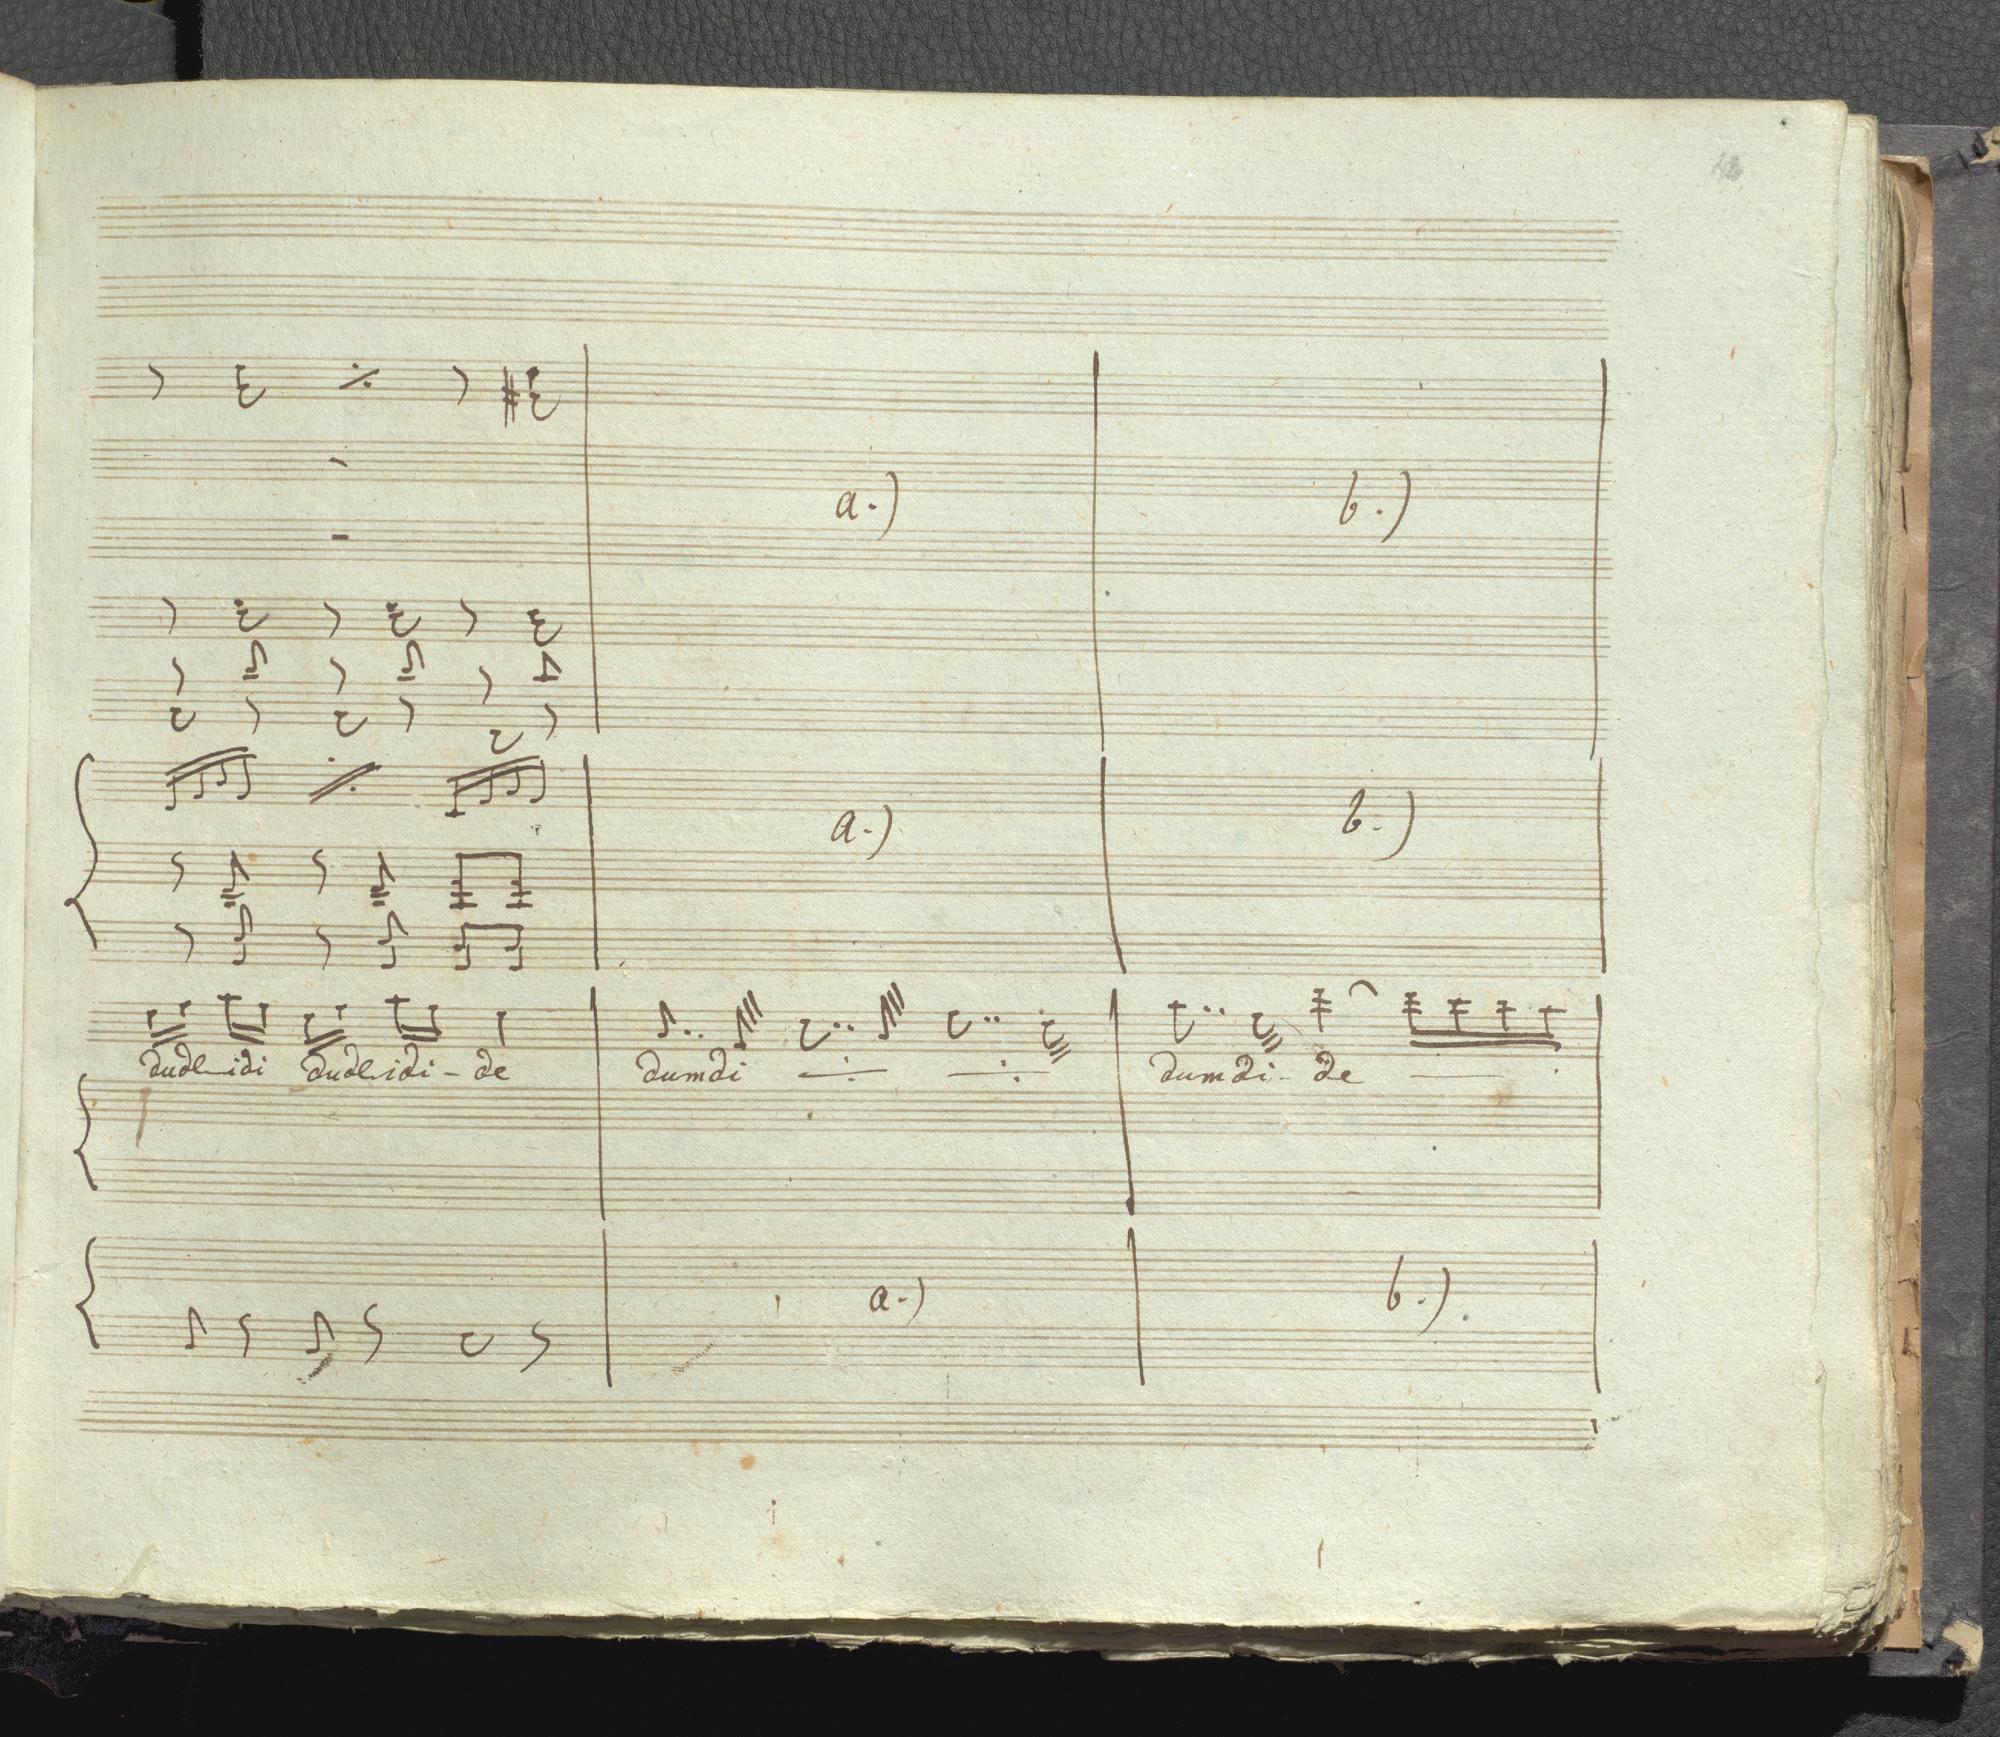 a.) b.)
a.) b.)
dudlidi dudlidi - de dumdi dumdi - de
a.) b.).